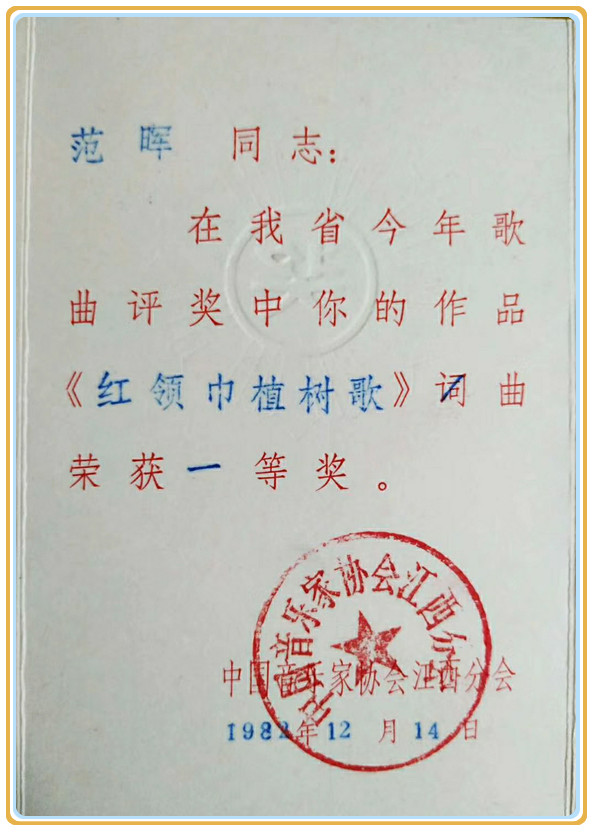 范晖 同志：
在我省今年歌
曲评奖中你的作品
《红领巾植树歌》词曲
荣获一等奖。
中国音乐家协会江西分会
中国音乐家协会江西分会
1982年12月14日